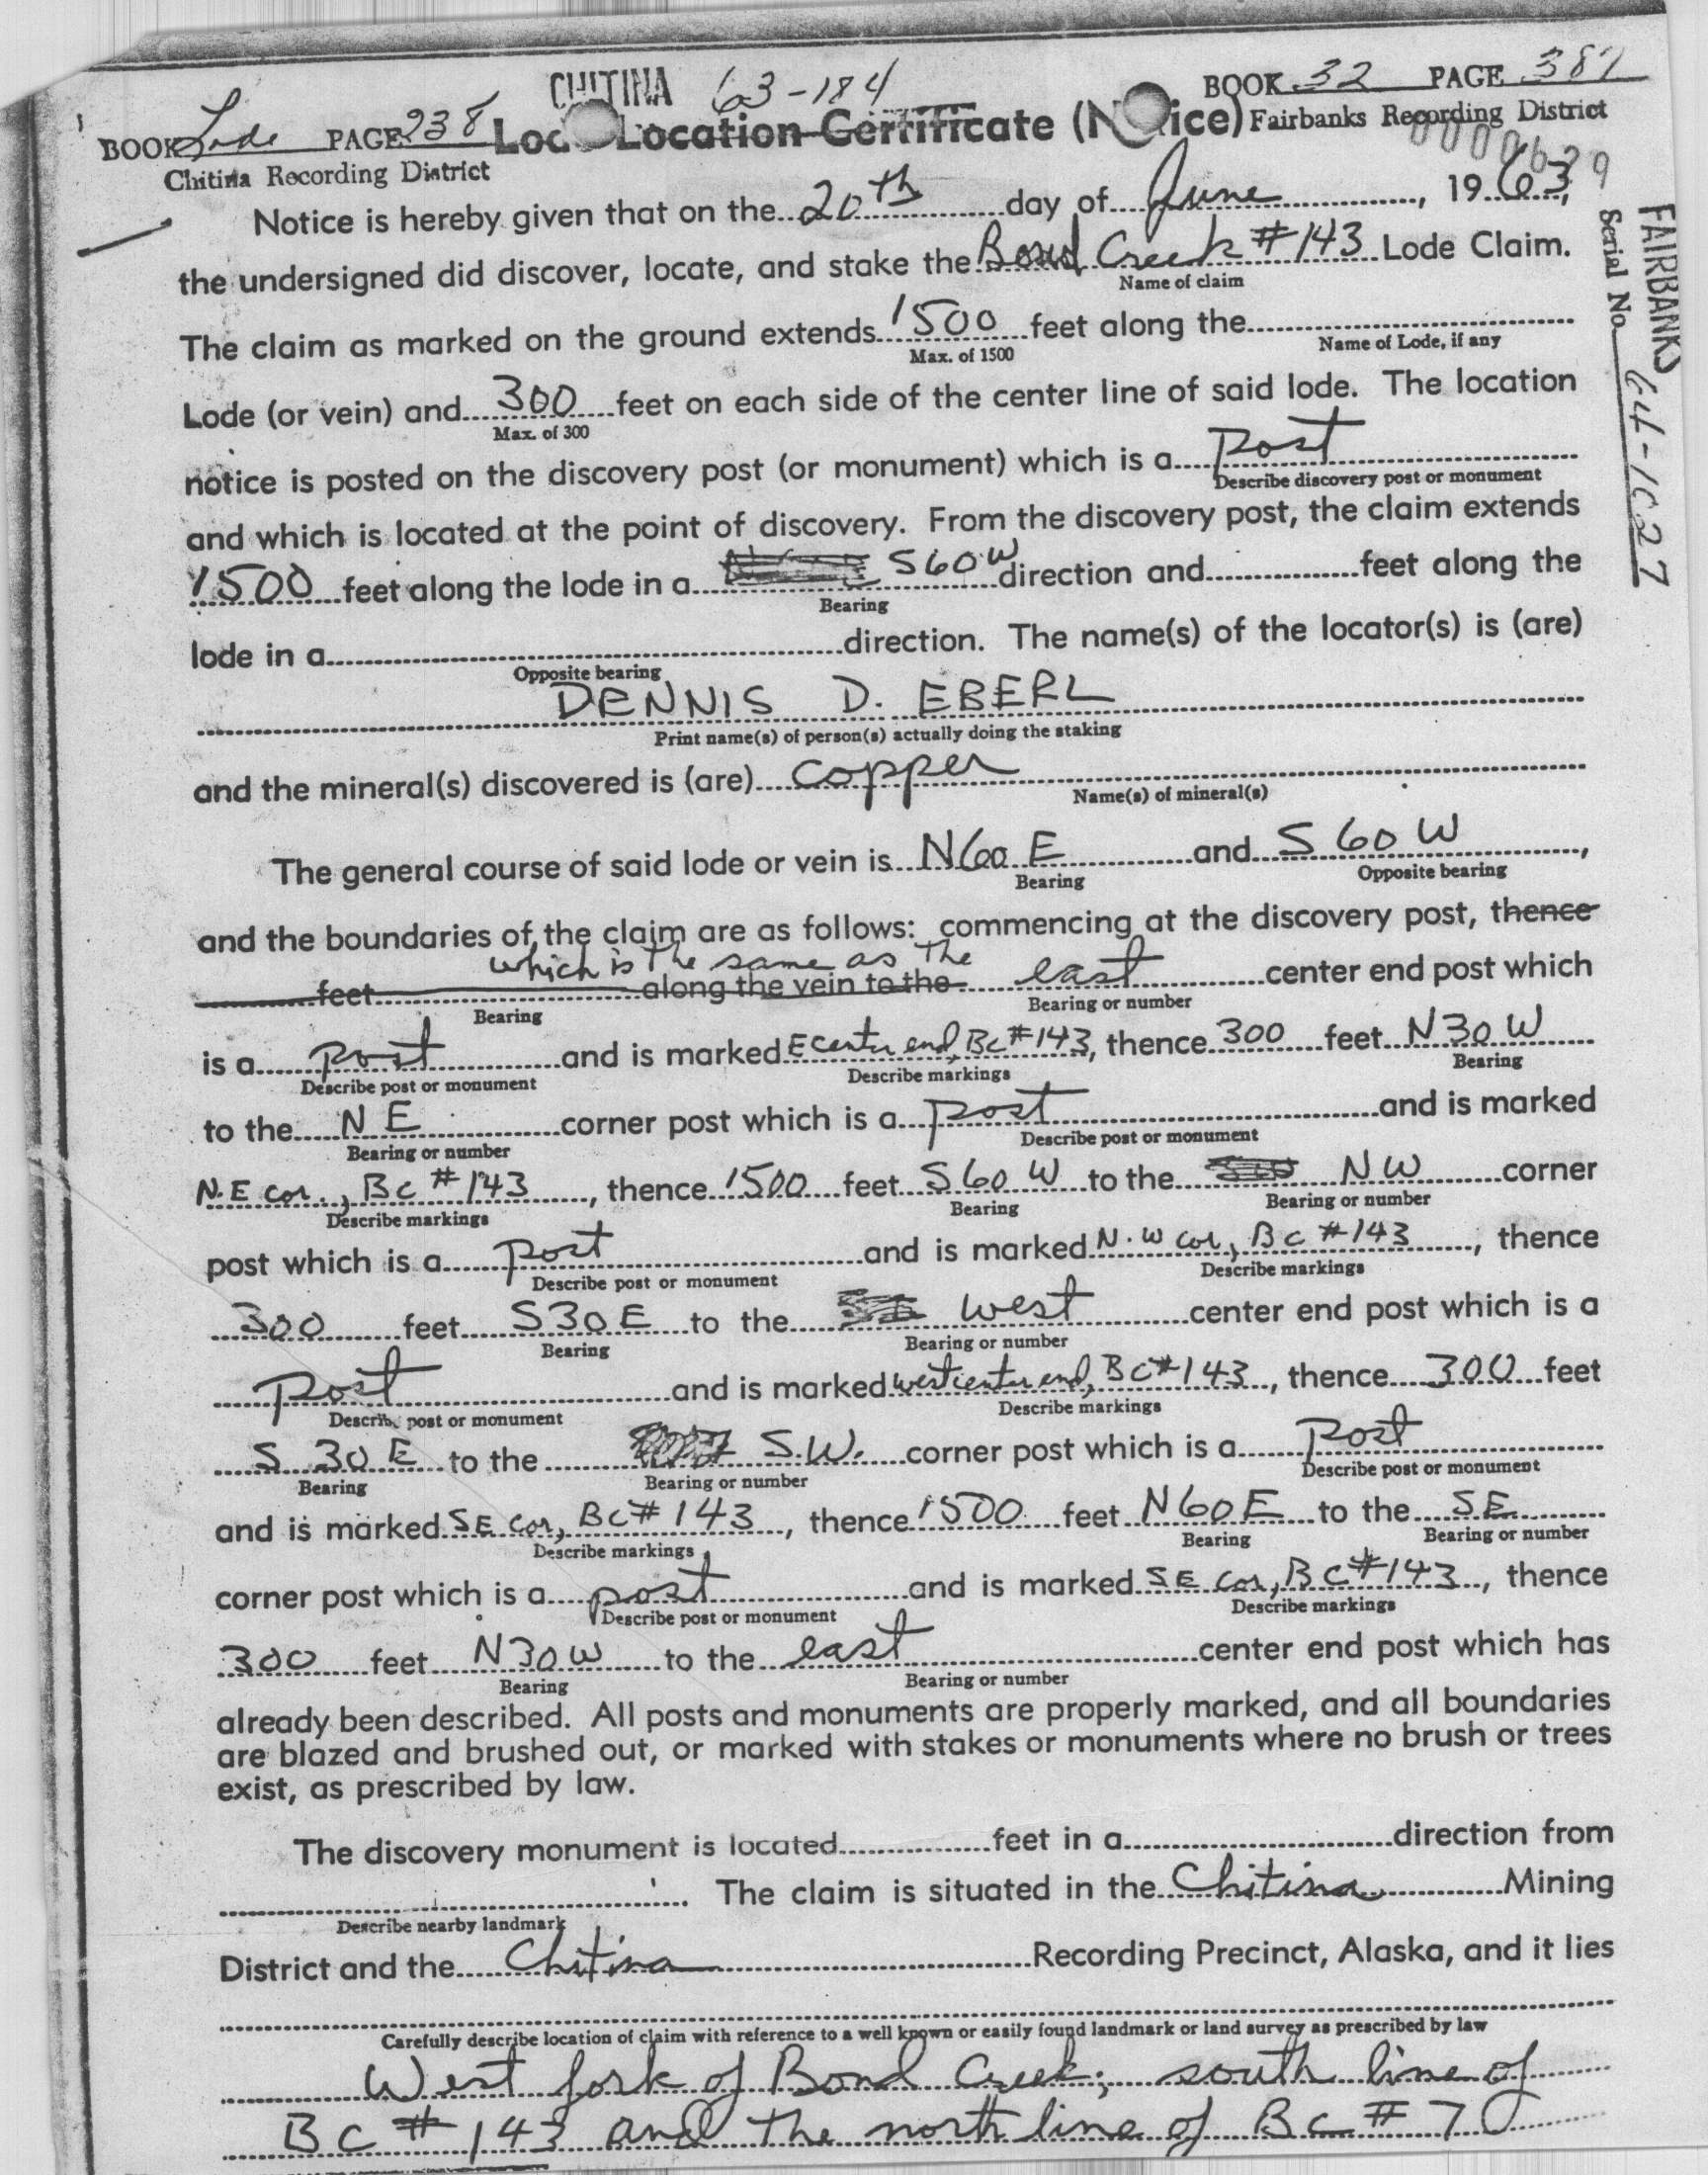 CHITINA 63-184
BOOK 32 PAGE 387
BOOK Lode PAGE 238 Location Certificate (Notice) Fairbanks Recording District
Chitina Recording District
Notice is hereby given that on the 20th day of June, 1963,
FAIRBANKS
Serial No. 64-1027
the undersigned did discover, locate, and stake the Bond Creek #143 Lode Claim.
Name of claim
The claim as marked on the ground extends 1500 feet along the
Max. of 1500 Name of Lode, if any
Lode (or vein) and 300 feet on each side of the center line of said lode. The location
Max. of 300
notice is posted on the discovery post (or monument) which is a post
Describe discovery post or monument
and which is located at the point of discovery. From the discovery post, the claim extends
1500 feet along the lode in a S60W direction and feet along the
Bearing
lode in a direction. The name(s) of the locator(s) is (are)
Opposite bearing
DENNIS D. EBERL
Print name(s) of person(s) actually doing the staking
and the mineral(s) discovered is (are) copper
Name(s) of mineral(s)
The general course of said lode or vein is N60 E and S 60 W,
Bearing Opposite bearing
and the boundaries of the claim are as follows: commencing at the discovery post, thence
which is the same as the
feet along the vein to the east center end post which
Bearing Bearing or number
is a post and is marked E center end, BC #143, thence 300 feet N30W
Describe post or monument Describe markings Bearing
to the NE corner post which is a post and is marked
Bearing or number Describe post or monument
N.E cor., BC #143, thence 1500 feet S60W to the NW corner
Describe markings Bearing Bearing or number
post which is a post and is marked N.W cor, BC #143, thence
Describe post or monument Describe markings
300 feet S30E to the west center end post which is a
Bearing Bearing or number
post and is marked west center end, BC #143, thence 300 feet
Describe post or monument Describe markings
S 30 E to the S.W. corner post which is a post
Bearing Bearing or number Describe post or monument
and is marked SE cor, BC #143, thence 1500 feet N60E to the SE
Describe markings Bearing Bearing or number
corner post which is a post and is marked SE cor, BC #143, thence
Describe post or monument Describe markings
300 feet N30W to the east center end post which has
Bearing Bearing or number
already been described. All posts and monuments are properly marked, and all boundaries
are blazed and brushed out, or marked with stakes or monuments where no brush or trees
exist, as prescribed by law.
The discovery monument is located feet in a direction from
. The claim is situated in the Chitina Mining
Describe nearby landmark
District and the Chitina Recording Precinct, Alaska, and it lies
Carefully describe location of claim with reference to a well known or easily found landmark or land survey as prescribed by law
West fork of Bond Creek; south line of
BC #143 and the north line of BC #70